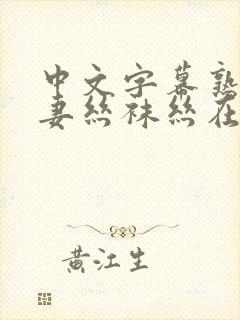 中文字幕熟
妻丝袜丝在
黄江生